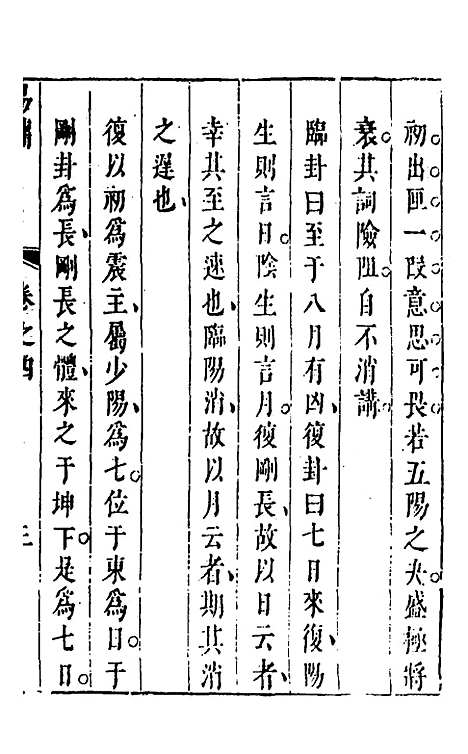 初出匣一段意思可畏若五陽之夬盛極將
衰其詞險阻自不消講
臨卦曰至于八月有凶復卦曰七日來復陽
生則言日陰生則言月復剛長故以日云者
幸其至之速也臨陽消故以月云者期其消
之遲也
復以初爲震主屬少陽爲七位于東爲日于
剛卦爲長剛長之體來之于坤下是爲七日
卷之四